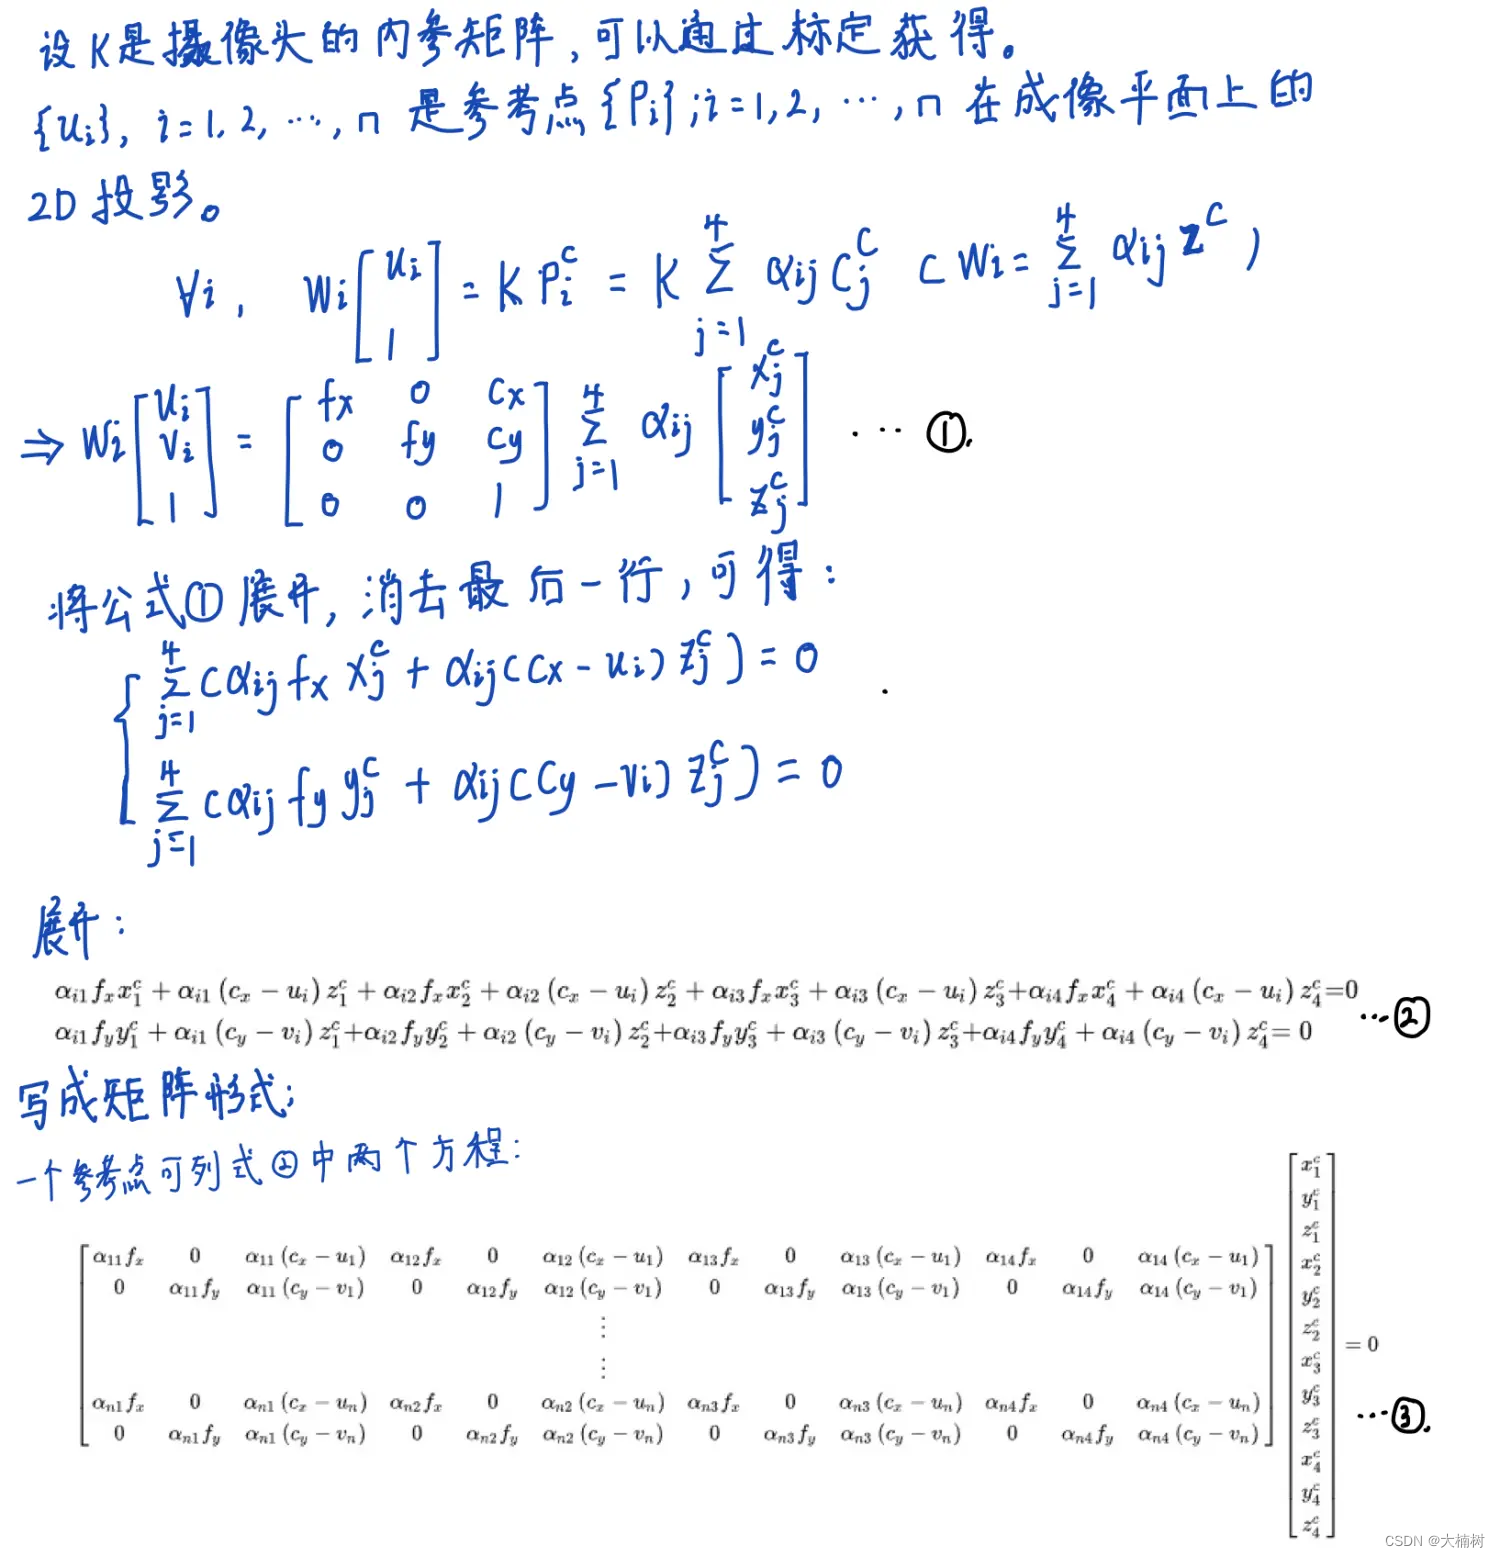 设K是摄像头的内参矩阵,可以通过标定获得。
{u_i}, i=1,2,⋯,n 是参考点{P_i};i=1,2,⋯,n 在成像平面上的
2D投影。
∀i, w_i [u_i; 1] = K P_i^c = K ∑_{j=1}^{4} α_ij C_j^c ( w_i = ∑_{j=1}^{4} α_ij z^c )
⇒ w_i [u_i; v_i; 1] = [f_x 0 c_x; 0 f_y c_y; 0 0 1] ∑_{j=1}^{4} α_ij [x_j^c; y_j^c; z_j^c] ⋯ ①.
将公式①展开,消去最后一行,可得:
∑_{j=1}^{4} (α_ij f_x x_j^c + α_ij (c_x - u_i) z_j^c) = 0
∑_{j=1}^{4} (α_ij f_y y_j^c + α_ij (c_y - v_i) z_j^c) = 0
展开:
α_i1 f_x x_1^c + α_i1 (c_x − u_i) z_1^c + α_i2 f_x x_2^c + α_i2 (c_x − u_i) z_2^c + α_i3 f_x x_3^c + α_i3 (c_x − u_i) z_3^c + α_i4 f_x x_4^c + α_i4 (c_x − u_i) z_4^c = 0
α_i1 f_y y_1^c + α_i1 (c_y − v_i) z_1^c + α_i2 f_y y_2^c + α_i2 (c_y − v_i) z_2^c + α_i3 f_y y_3^c + α_i3 (c_y − v_i) z_3^c + α_i4 f_y y_4^c + α_i4 (c_y − v_i) z_4^c = 0 ⋯②
写成矩阵形式;
一个参考点可列式②中两个方程:
α_11 f_x 0 α_11 (c_x − u_1) α_12 f_x 0 α_12 (c_x − u_1) α_13 f_x 0 α_13 (c_x − u_1) α_14 f_x 0 α_14 (c_x − u_1)
0 α_11 f_y α_11 (c_y − v_1) 0 α_12 f_y α_12 (c_y − v_1) 0 α_13 f_y α_13 (c_y − v_1) 0 α_14 f_y α_14 (c_y − v_1)
⋮
⋮
α_n1 f_x 0 α_n1 (c_x − u_n) α_n2 f_x 0 α_n2 (c_x − u_n) α_n3 f_x 0 α_n3 (c_x − u_n) α_n4 f_x 0 α_n4 (c_x − u_n)
0 α_n1 f_y α_n1 (c_y − v_n) 0 α_n2 f_y α_n2 (c_y − v_n) 0 α_n3 f_y α_n3 (c_y − v_n) 0 α_n4 f_y α_n4 (c_y − v_n)
x_1^c
y_1^c
z_1^c
x_2^c
y_2^c
z_2^c
x_3^c
y_3^c
z_3^c
x_4^c
y_4^c
z_4^c
= 0
⋯③.
CSDN @大楠树